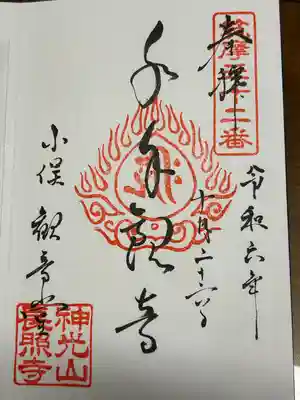 奉拝
十二番
令和六年
十月二十六日
千手観音
小俣 観音堂
神光山
照寺